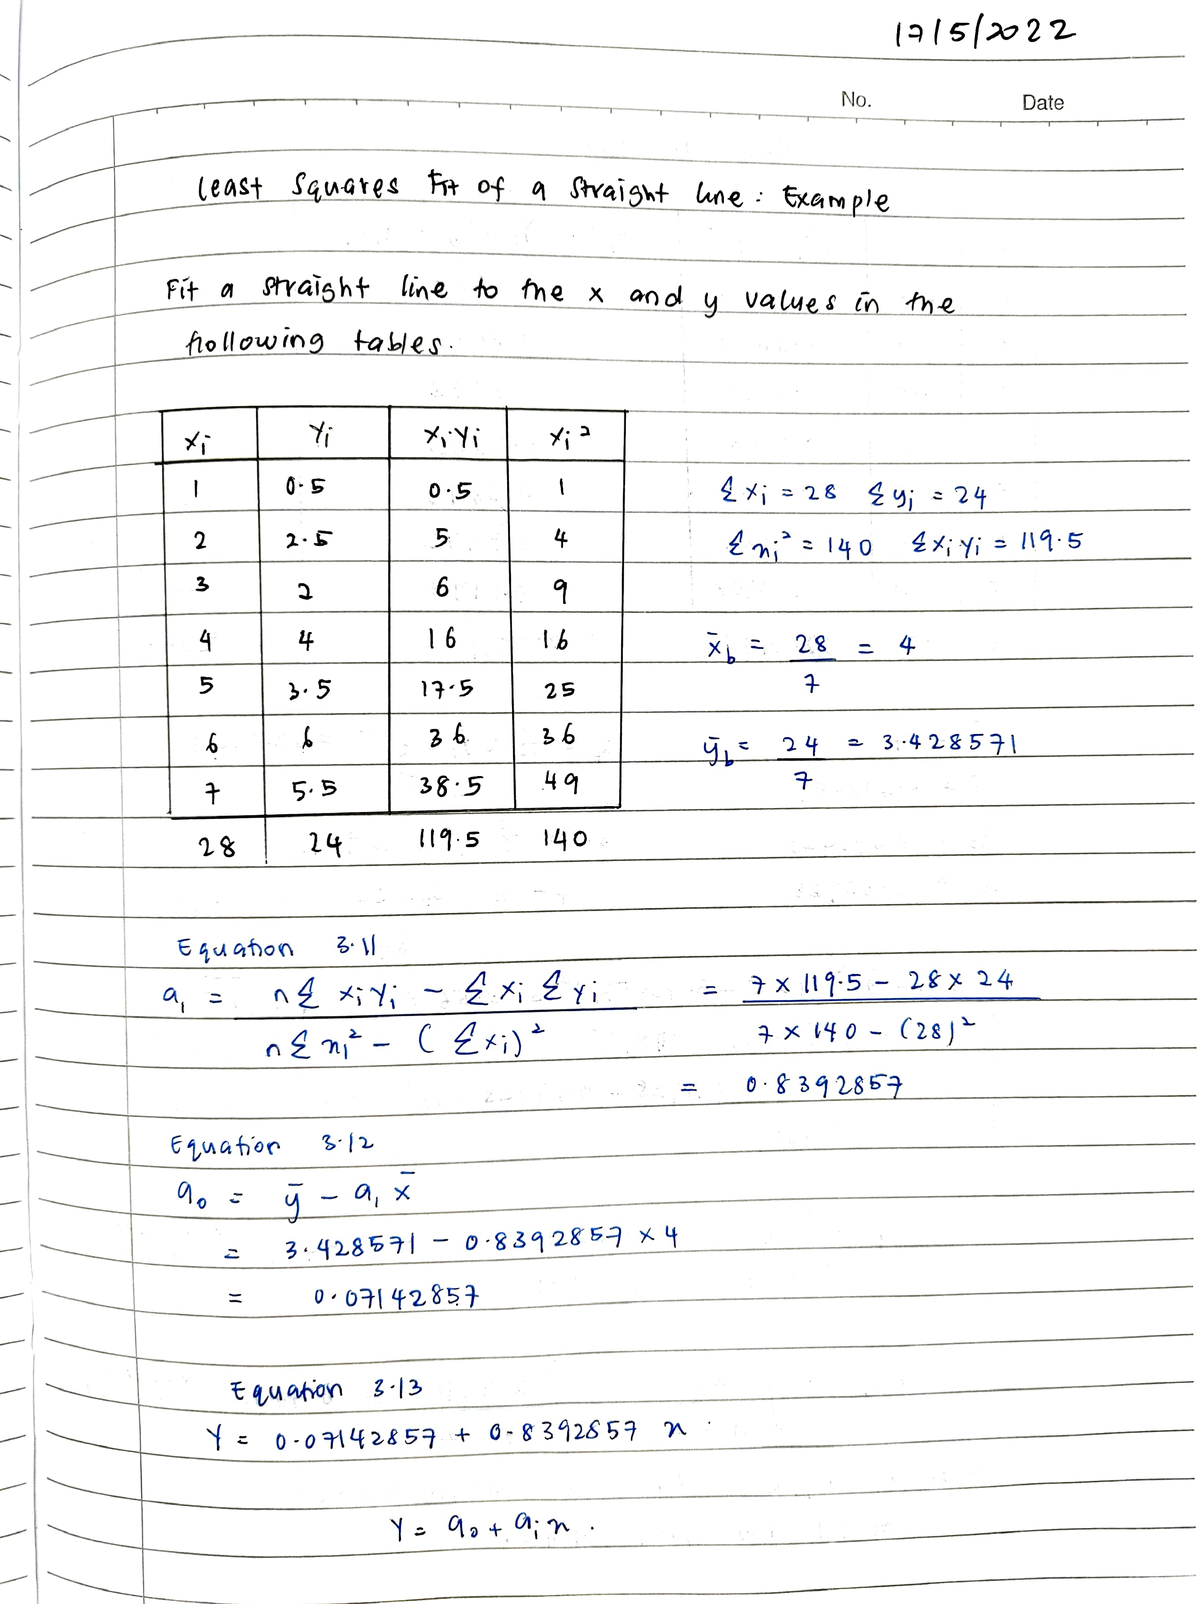 17/5/2022
No. Date
Least Squares Fit of a Straight line : Example
Fit a straight line to the x and y values in the
following tables.
xi yi xiyi xi²
1 0.5 0.5 1
2 2.5 5 4
3 2 6 9
4 4 16 16
5 3.5 17.5 25
6 6 36 36
7 5.5 38.5 49
28 24 119.5 140
Σxi = 28 Σyi = 24
Σxi² = 140 Σxiyi = 119.5
x̄b = 28/7 = 4
ȳb = 24/7 = 3.428571
Equation 3.11
a₁ = (nΣxiyi − Σxi Σyi) / (nΣxi² − (Σxi)²) = (7 × 119.5 − 28 × 24) / (7 × 140 − (28)²)
= 0.8392857
Equation 3.12
a₀ = ȳ − a₁ x̄
= 3.428571 − 0.8392857 × 4
= 0.07142857
Equation 3.13
Y = 0.07142857 + 0.8392857 x .
Y = a₀ + aix .